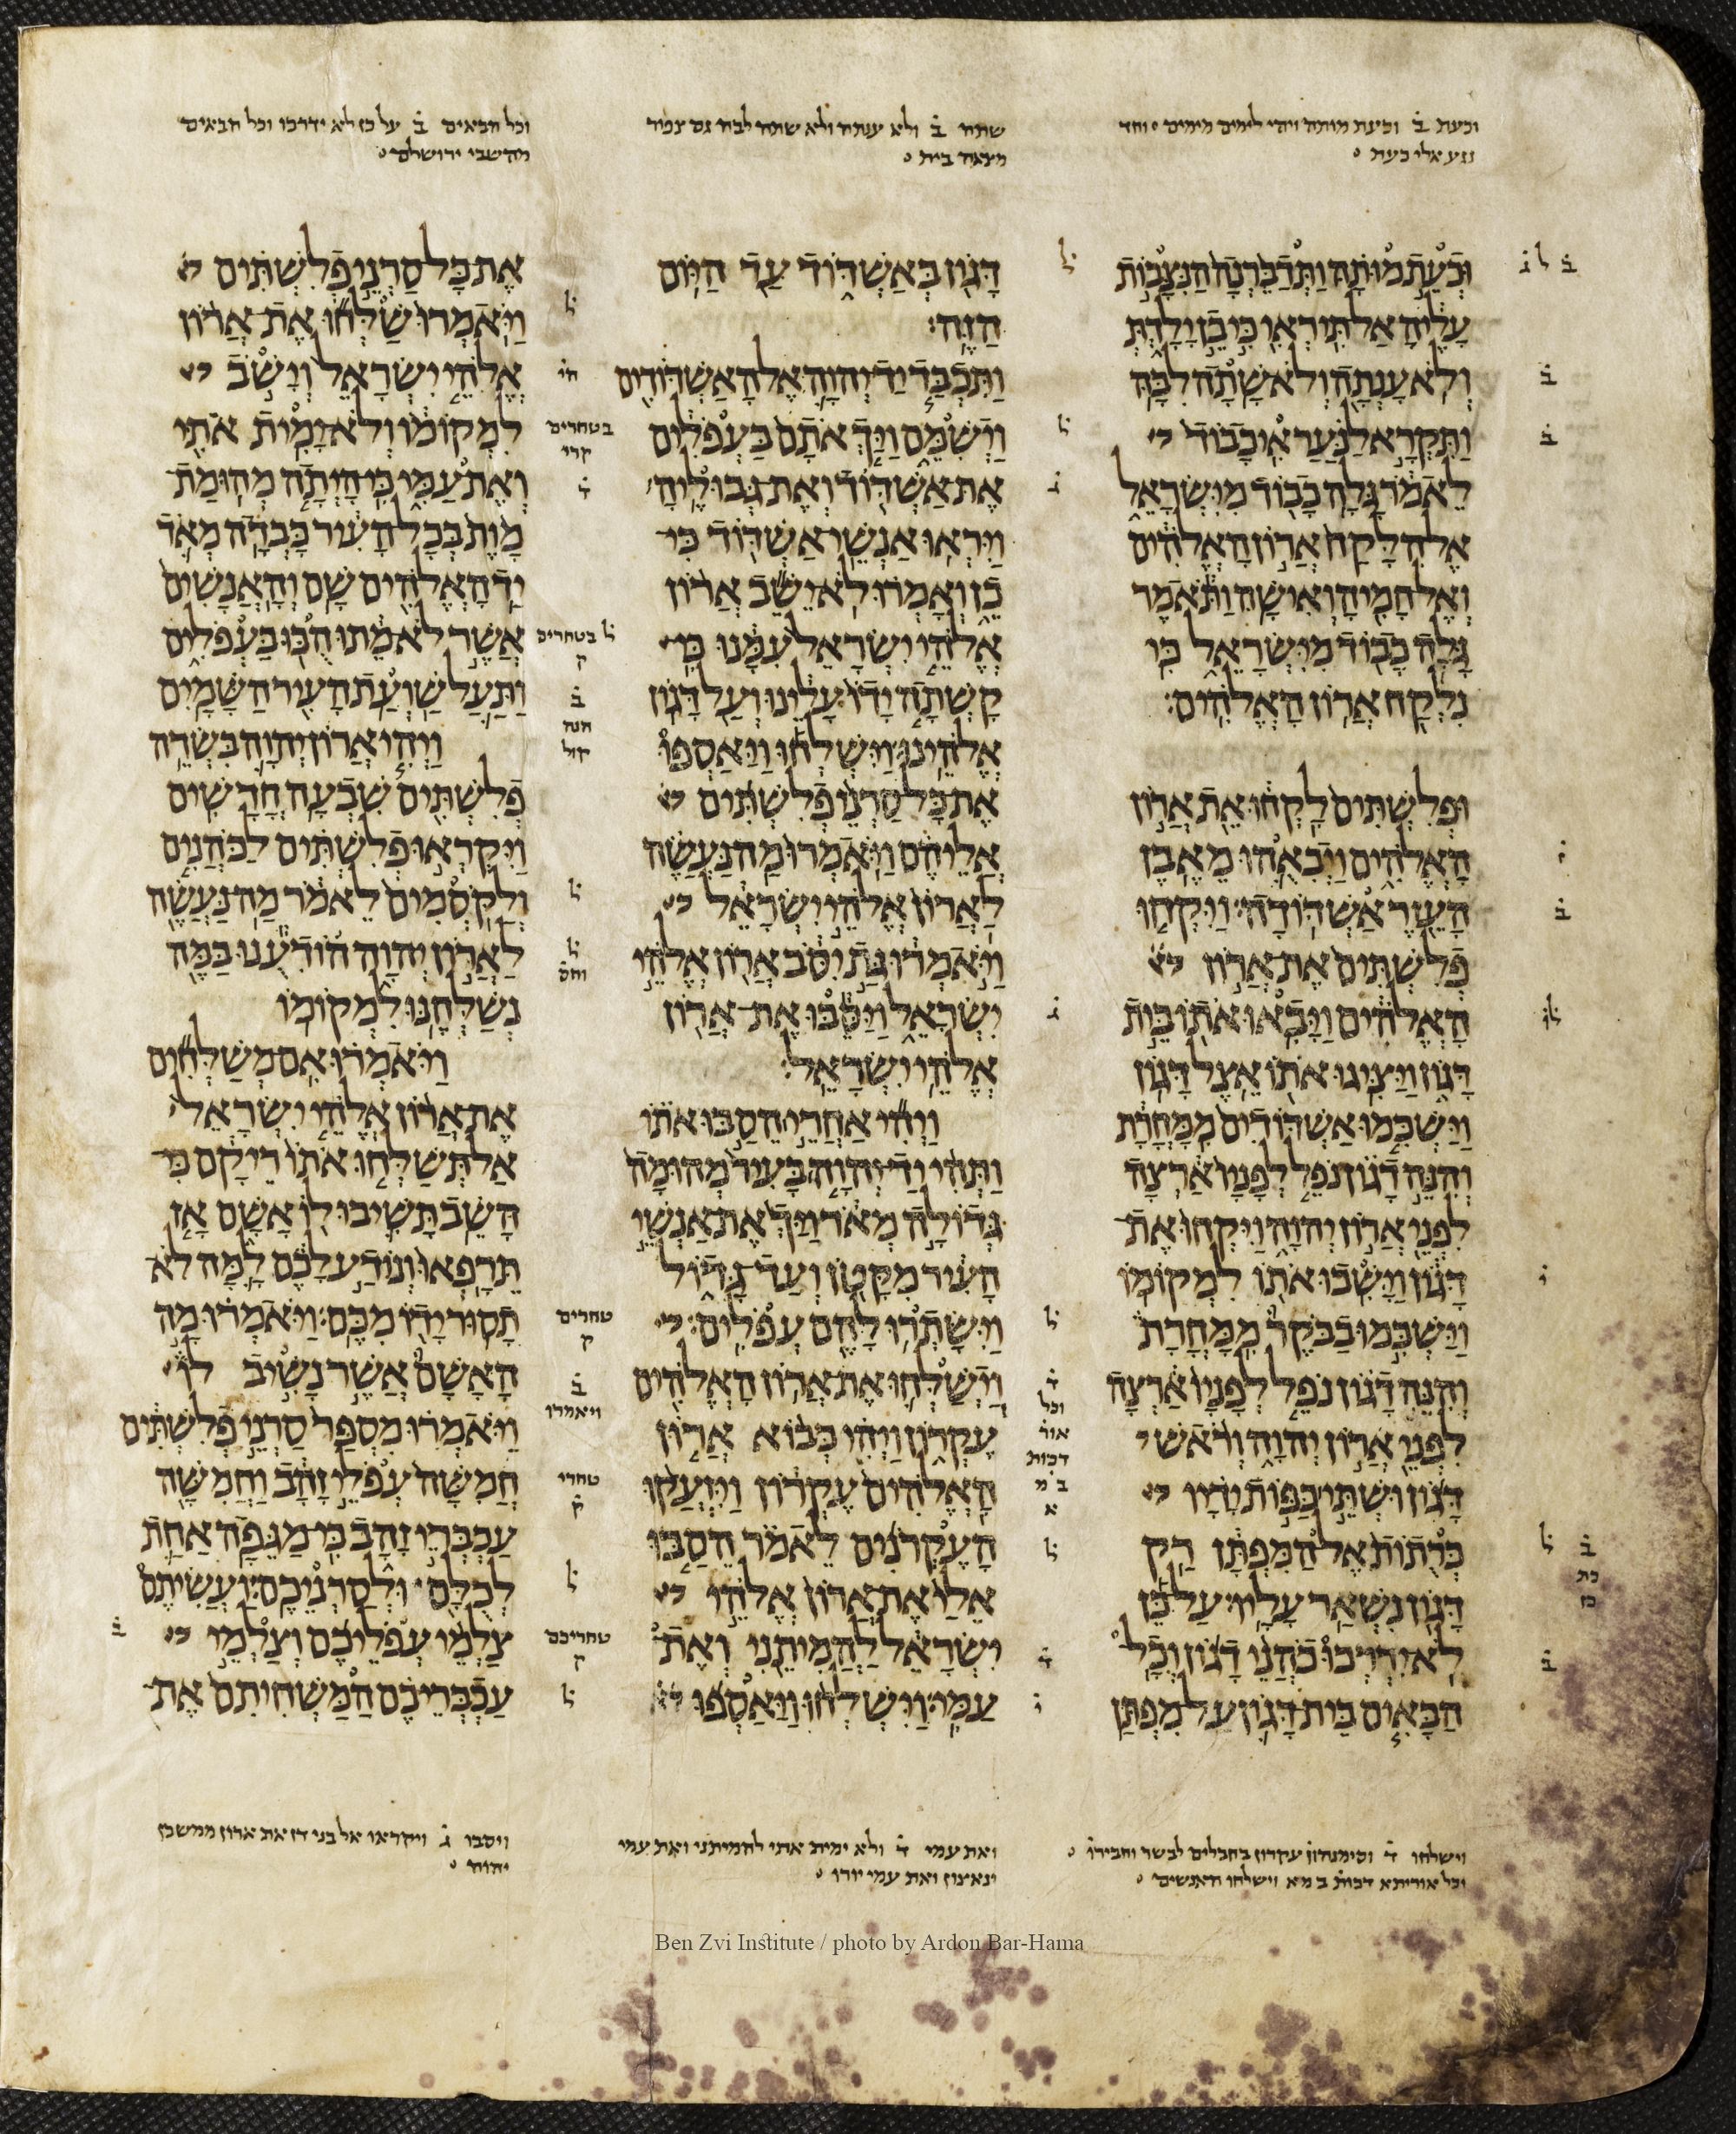 וכעת ב̇ וכעת מותה ויהי לימים מימים ׃ וחד
נגע אלי כעת ׃
שתה ב̇ ולא ענתה ולא שתה לבה גם צפור
מצאה בית ׃
וכל הבאים ב̇ על כן לא ידרכו וכל הבאים
מהשבי ירושלם ׃
וּכְעֵת מוּתָהּ וַתְּדַבֵּרְנָה הַנִּצָּבוֹת
עָלֶיהָ אַל תִּירְאִי כִּי בֵן יָלָדְתְּ
וְלֹא עָנְתָה וְלֹא שָׁתָה לִבָּהּ
וַתִּקְרָא לַנַּעַר אִי כָבוֹד
לֵאמֹר גָּלָה כָבוֹד מִיִּשְׂרָאֵל
אֶל הִלָּקַח אֲרוֹן הָאֱלֹהִים
וְאֶל חָמִיהָ וְאִישָׁהּ וַתֹּאמֶר
גָּלָה כָבוֹד מִיִּשְׂרָאֵל כִּי
נִלְקַח אֲרוֹן הָאֱלֹהִים׃
וּפְלִשְׁתִּים לָקְחוּ אֵת אֲרוֹן
הָאֱלֹהִים וַיְבִאֻהוּ מֵאֶבֶן
הָעֵזֶר אַשְׁדּוֹדָה׃ וַיִּקְחוּ
פְלִשְׁתִּים אֶת־אֲרוֹן
הָאֱלֹהִים וַיָּבִאוּ אֹתוֹ בֵּית
דָּגוֹן וַיַּצִּיגוּ אֹתוֹ אֵצֶל דָּגוֹן
וַיַּשְׁכִּמוּ אַשְׁדּוֹדִים מִמָּחֳרָת
וְהִנֵּה דָגוֹן נֹפֵל לְפָנָיו אַרְצָה
לִפְנֵי אֲרוֹן יְהוָה וַיִּקְחוּ אֶת־
דָּגוֹן וַיָּשִׁבוּ אֹתוֹ לִמְקוֹמוֹ
וַיַּשְׁכִּמוּ בַבֹּקֶר מִמָּחֳרָת
וְהִנֵּה דָגוֹן נֹפֵל לְפָנָיו אַרְצָה
לִפְנֵי אֲרוֹן יְהוָה וְרֹאשׁ
דָּגוֹן וּשְׁתֵּי כַּפּוֹת יָדָיו
כְּרֻתוֹת אֶל הַמִּפְתָּן רַק
דָּגוֹן נִשְׁאַר עָלָיו׃ עַל כֵּן
לֹא יִדְרְכוּ כֹהֲנֵי דָגוֹן וְכָל
הַבָּאִים בֵּית דָּגוֹן עַל מִפְתַּן
דָּגוֹן בְּאַשְׁדּוֹד עַד הַיּוֹם
הַזֶּה׃
וַתִּכְבַּד יַד יְהוָה אֶל הָאַשְׁדּוֹדִים
וַיְשִׁמֵּם וַיַּךְ אֹתָם בַּעְפֹלִים
אֶת אַשְׁדּוֹד וְאֶת־גְּבוּלֶיהָ׃
וַיִּרְאוּ אַנְשֵׁי אַשְׁדּוֹד כִּי־
כֵן וְאָמְרוּ לֹא יֵשֵׁב אֲרוֹן
אֱלֹהֵי יִשְׂרָאֵל עִמָּנוּ כִּי־
קָשְׁתָה יָדוֹ עָלֵינוּ וְעַל דָּגוֹן
אֱלֹהֵינוּ׃ וַיִּשְׁלְחוּ וַיַּאַסְפוּ
אֶת כָּל סַרְנֵי פְלִשְׁתִּים
אֲלֵיהֶם וַיֹּאמְרוּ מַה נַּעֲשֶׂה
לַאֲרוֹן אֱלֹהֵי יִשְׂרָאֵל
וַיֹּאמְרוּ גַּת יִסֹּב אֲרוֹן אֱלֹהֵי
יִשְׂרָאֵל וַיַּסֵּבּוּ אֶת־אֲרוֹן
אֱלֹהֵי יִשְׂרָאֵל׃
וַיְהִי אַחֲרֵי הֵסַבּוּ אֹתוֹ
וַתְּהִי יַד יְהוָה בָּעִיר מְהוּמָה
גְּדוֹלָה מְאֹד וַיַּךְ אֶת אַנְשֵׁי
הָעִיר מִקָּטֹן וְעַד גָּדוֹל
וַיִּשָּׂתְרוּ לָהֶם עְפֹלִים׃
וַיְשַׁלְּחוּ אֶת אֲרוֹן הָאֱלֹהִים
עֶקְרוֹן וַיְהִי כְּבוֹא אֲרוֹן
הָאֱלֹהִים עֶקְרוֹן וַיִּזְעֲקוּ
הָעֶקְרֹנִים לֵאמֹר הֵסַבּוּ
אֵלַי אֶת אֲרוֹן אֱלֹהֵי
יִשְׂרָאֵל לַהֲמִיתֵנִי וְאֶת־
עַמִּי׃ וַיִּשְׁלְחוּ וַיַּאַסְפוּ
אֶת כָּל סַרְנֵי פְלִשְׁתִּים
וַיֹּאמְרוּ שַׁלְּחוּ אֶת־אֲרוֹן
אֱלֹהֵי יִשְׂרָאֵל וְיָשֹׁב
לִמְקוֹמוֹ וְלֹא יָמִית אֹתִי
וְאֶת עַמִּי כִּי הָיְתָה מְהוּמַת־
מָוֶת בְּכָל הָעִיר כָּבְדָה מְאֹד
יַד הָאֱלֹהִים שָׁם וְהָאֲנָשִׁים
אֲשֶׁר לֹא מֵתוּ הֻכּוּ בַּעְפֹלִים
וַתַּעַל שַׁוְעַת הָעִיר הַשָּׁמָיִם
וַיְהִי אֲרוֹן יְהוָה בִּשְׂדֵה
פְלִשְׁתִּים שִׁבְעָה חֳדָשִׁים
וַיִּקְרְאוּ פְלִשְׁתִּים לַכֹּהֲנִים
וְלַקֹּסְמִים לֵאמֹר מַה נַּעֲשֶׂה
לַאֲרוֹן יְהוָה הוֹדִעֻנוּ בַּמֶּה
נְשַׁלְּחֶנּוּ לִמְקוֹמוֹ
וַיֹּאמְרוּ אִם מְשַׁלְּחִים
אֶת אֲרוֹן אֱלֹהֵי יִשְׂרָאֵל
אַל תְּשַׁלְּחוּ אֹתוֹ רֵיקָם כִּי־
הָשֵׁב תָּשִׁיבוּ לוֹ אָשָׁם אָז
תֵּרָפְאוּ וְנוֹדַע לָכֶם לָמָּה לֹא
תָסוּר יָדוֹ מִכֶּם׃ וַיֹּאמְרוּ מָה
הָאָשָׁם אֲשֶׁר נָשִׁיב לוֹ
וַיֹּאמְרוּ מִסְפַּר סַרְנֵי פְלִשְׁתִּים
חֲמִשָּׁה עְפֹלֵי זָהָב וַחֲמִשָּׁה
עַכְבְּרֵי זָהָב כִּי־מַגֵּפָה אַחַת
לְכֻלָּם וּלְסַרְנֵיכֶם׃ וַעֲשִׂיתֶם
צַלְמֵי עְפֹלֵיכֶם וְצַלְמֵי
עַכְבְּרֵיכֶם הַמַּשְׁחִיתִם אֶת־
בטחרים
קרי
בטחרים
ק
טחרים
ק
טחרי
ק
טחריכם
ק
וישלחו ד̇ וסימנהון עקרון בחבלים לבשר וחבירו ׃
וכל אוריתא דכות ב מ א וישלחו האנשים ׃
ואת עמי ד̇ ולא ימית אתי להמיתני ואת עמי
ינאצון ואת עמי יורו ׃
ויסבו ג̇ ויקראו אל בני דן את ארון ממשכן
יהוה ׃
Ben Zvi Institute / photo by Ardon Bar-Hama